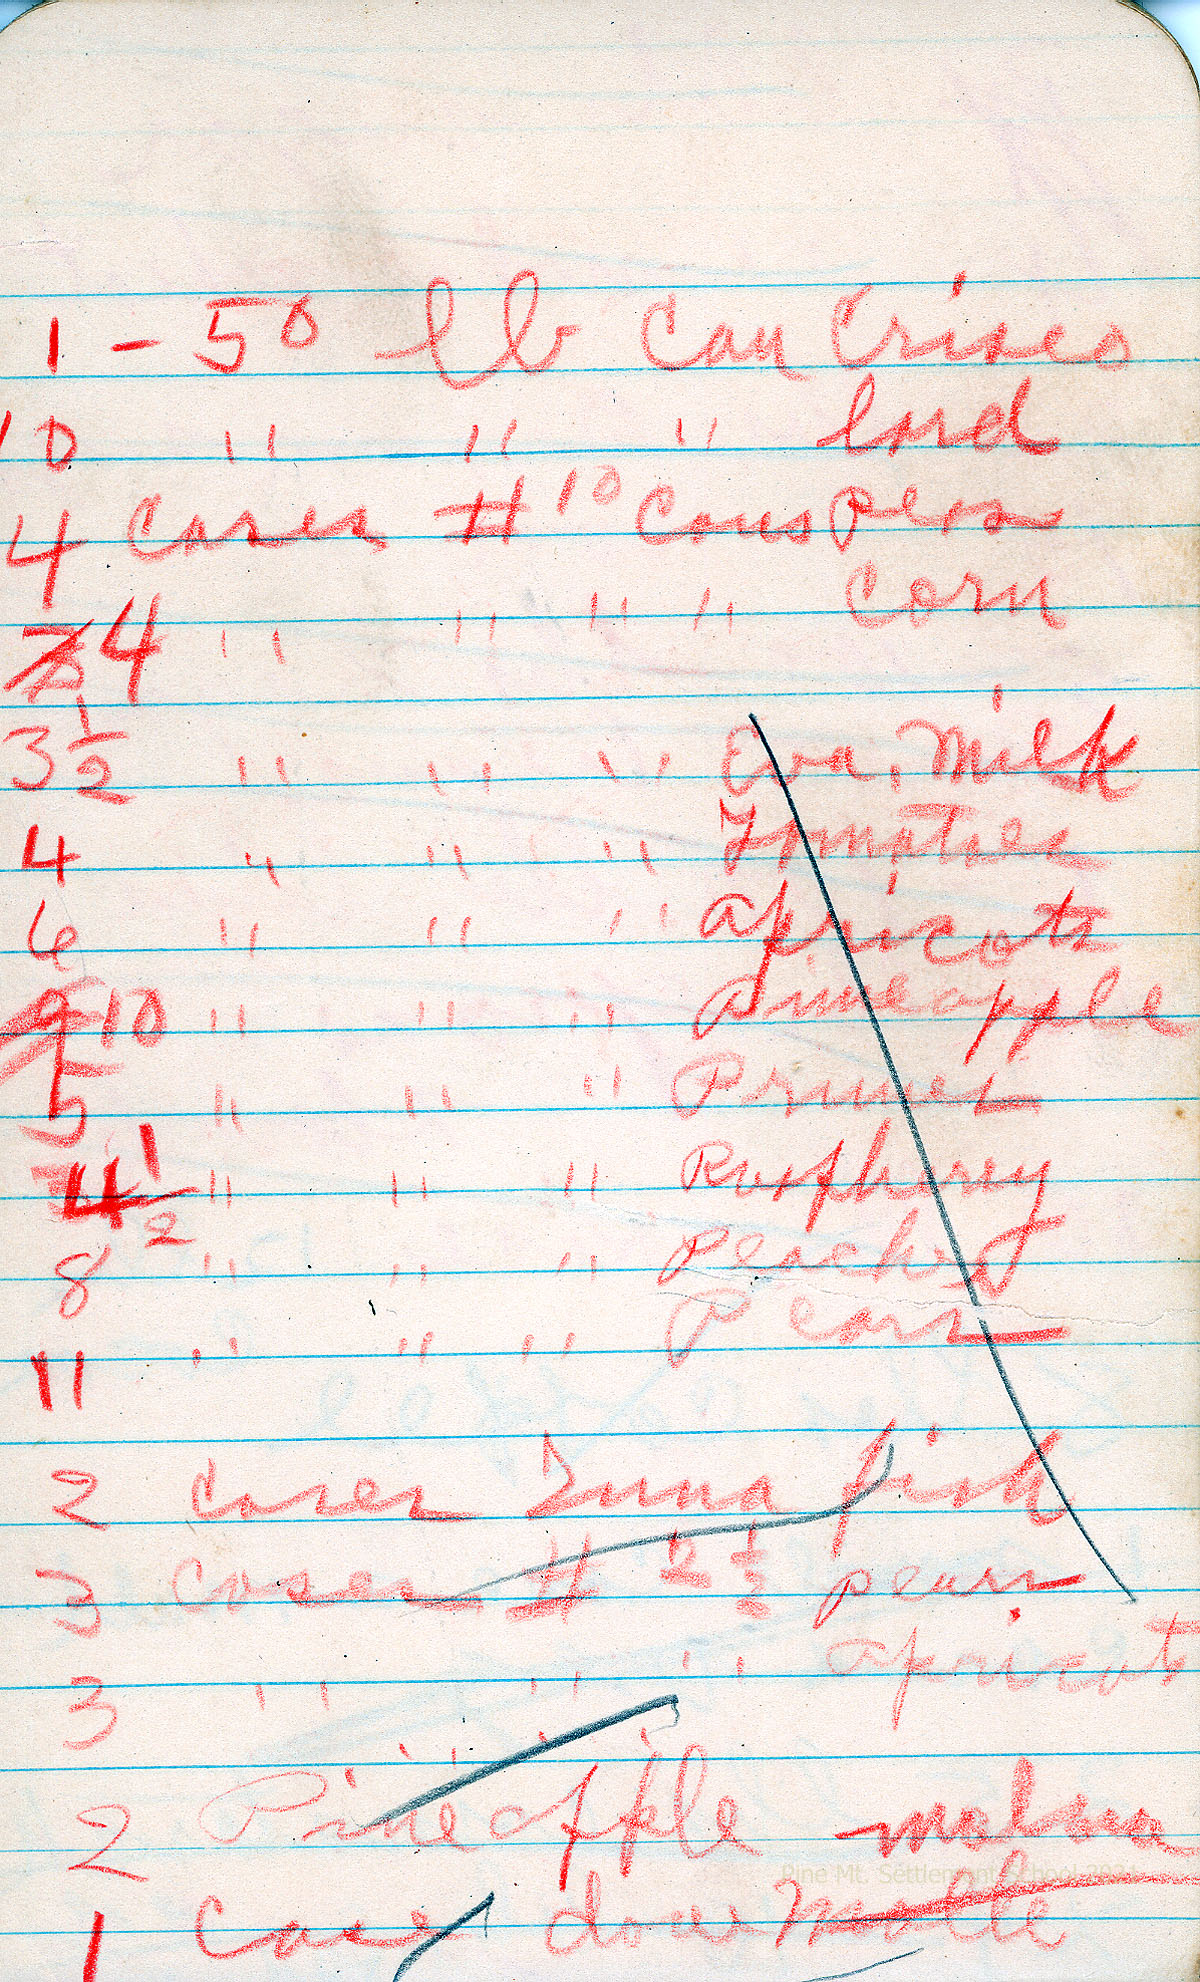 1 - 50 lb Can Crisco
10 " " " Lard
4 Cases # 10 Cans Peas
4 " " " " Corn
3 1/2 " " " Eva. Milk
4 " " " Tomatoes
6 " " " Apricots
10 " " " Pineapple
5 " " " Prunes
4 1/2 " " " Raspberry
8 " " " Peaches
11 " " " Pears
2 Cases Tuna fish
3 Cases # 2 1/2 pears
3 " " " apricots
" " "
2 Pineapple
1 Case
Pine Mt. Settlement School 2021